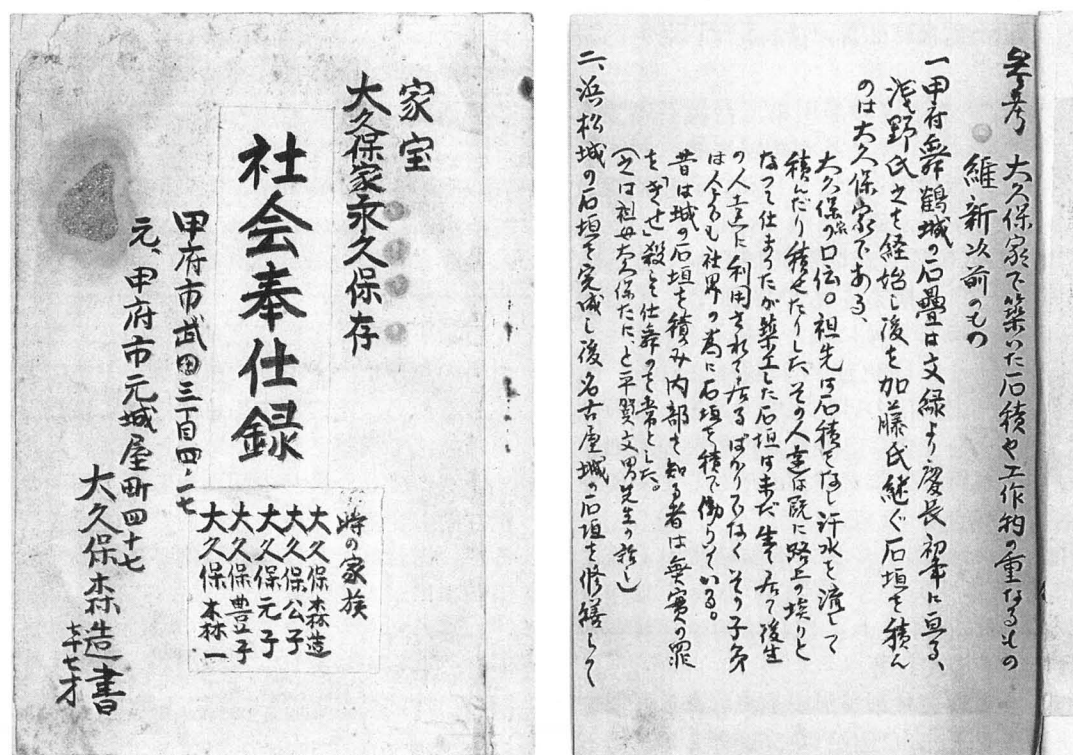 家宝
大久保家永久保存
社会奉仕録
甲府市武田三丁目四ノ一七
元、甲府市元城屋町四十七
大久保森造書
七十七才
時の家族
大久保森造
大久保公子
大久保元子
大久保豊子
大久保森一
参考 大久保家で築いた石積や工作物の重なるもの
維新次前のもの
一甲府舞鶴城の石疊は文緑より慶長初年に亘る、
浅野氏之を経始し後を加藤氏継ぐ石垣を積ん
のは大久保家である、
大久保家の口伝。祖先は石積をなし汗水を流して
積んだり積せたりした、その人達は既に路上の埃りと
なって仕まつたが築上した石垣は未だ生て居て後生
の人々に利用されて居るばかりでなくその子孫
は人よりも社界の為に石垣を積で働らいている。
昔は城の石垣を積み内部を知る者は無実の罪
をきせ殺して仕舞のを常とした。
(之は祖母大久保たにと平賀文男先生の話し)
二、浜松城の石垣を完成し後名古屋城の石垣を修繕して